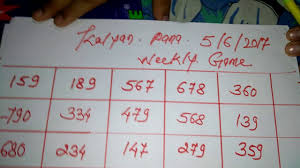 Kalyan. pana. 5/6/2017
weekly Game
159 189 567 678 360
790 334 479 568 139
680 234 147 279 359